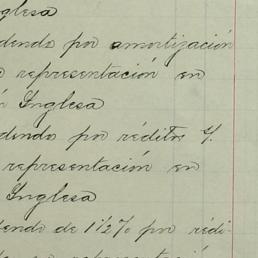 nglesa
dendo por amortización
representación en
Inglesa
dendo por réditos y.
representación en
Inglesa
dendo de 1½% por rédi-
representación